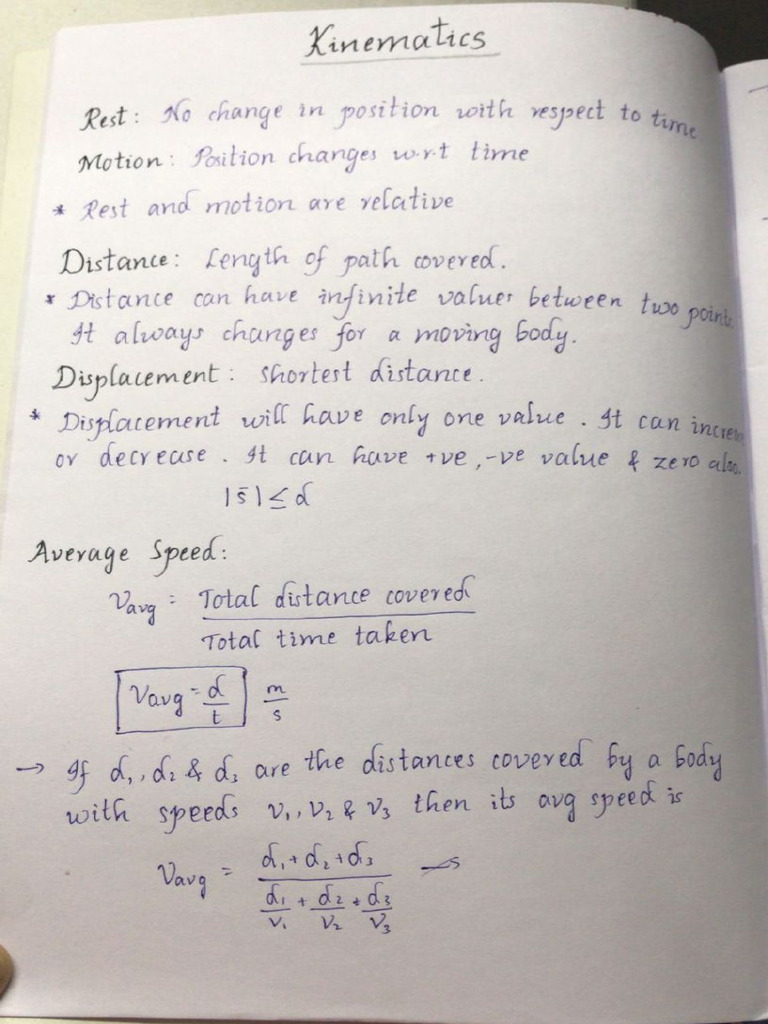 Kinematics
Rest: No change in position with respect to time
Motion: Position changes w.r.t time
* Rest and motion are relative
Distance: Length of path covered.
* Distance can have infinite values between two points.
It always changes for a moving body.
Displacement: shortest distance.
* Displacement will have only one value. It can increase
or decrease. It can have +ve, -ve value & zero also.
|s̄| ≤ d
Average Speed:
Vavg = Total distance covered
Total time taken
Vavg = d/t m/s
→ If d₁, d₂ & d₃ are the distances covered by a body
with speeds v₁, v₂ & v₃ then its avg speed is
Vavg = d₁ + d₂ + d₃
d₁/v₁ + d₂/v₂ + d₃/v₃